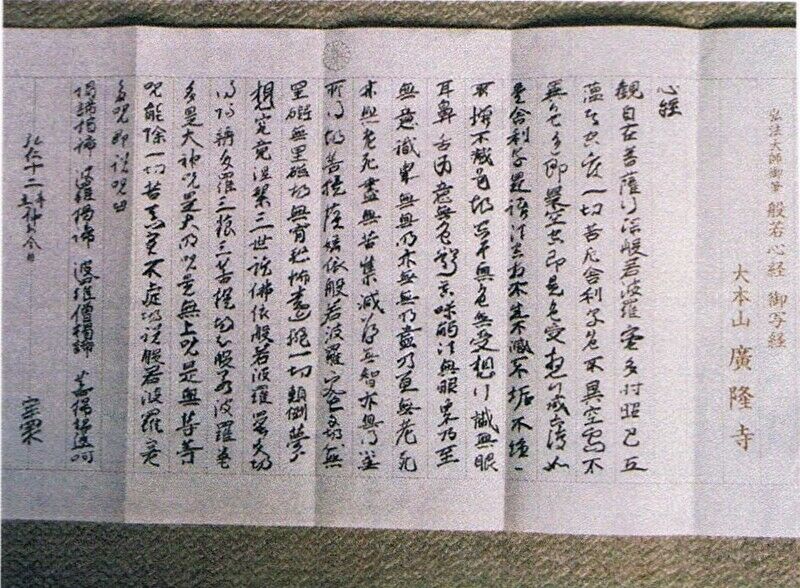 弘法大師御筆 般若心経 御写経
大本山 廣隆寺
心経
観自在菩薩行深般若波羅蜜多時照見五
蘊皆空度一切苦厄舍利子色不異空空不
異色色即是空空即是色受想行識亦復如
是舍利子是諸法空相不生不滅不垢不浄
不増不減是故空中無色無受想行識無眼
耳鼻舌身意無色声香味触法無眼界乃至
無意識界無無明亦無無明盡乃至無老死
亦無老死盡無苦集滅道無智亦無得以無
所得故菩提薩埵依般若波羅蜜多故無
罣礙無罣礙故無有恐怖遠離一切顛倒夢
想究竟涅槃三世諸佛依般若波羅蜜多故
得阿耨多羅三藐三菩提故知般若波羅蜜
多是大神呪是大明呪是無上呪是無等等
呪能除一切苦真実不虚故説般若波羅蜜
多呪即説呪曰
揭諦揭諦 波羅揭諦 波羅僧揭諦 菩提娑婆訶
弘仁十二年